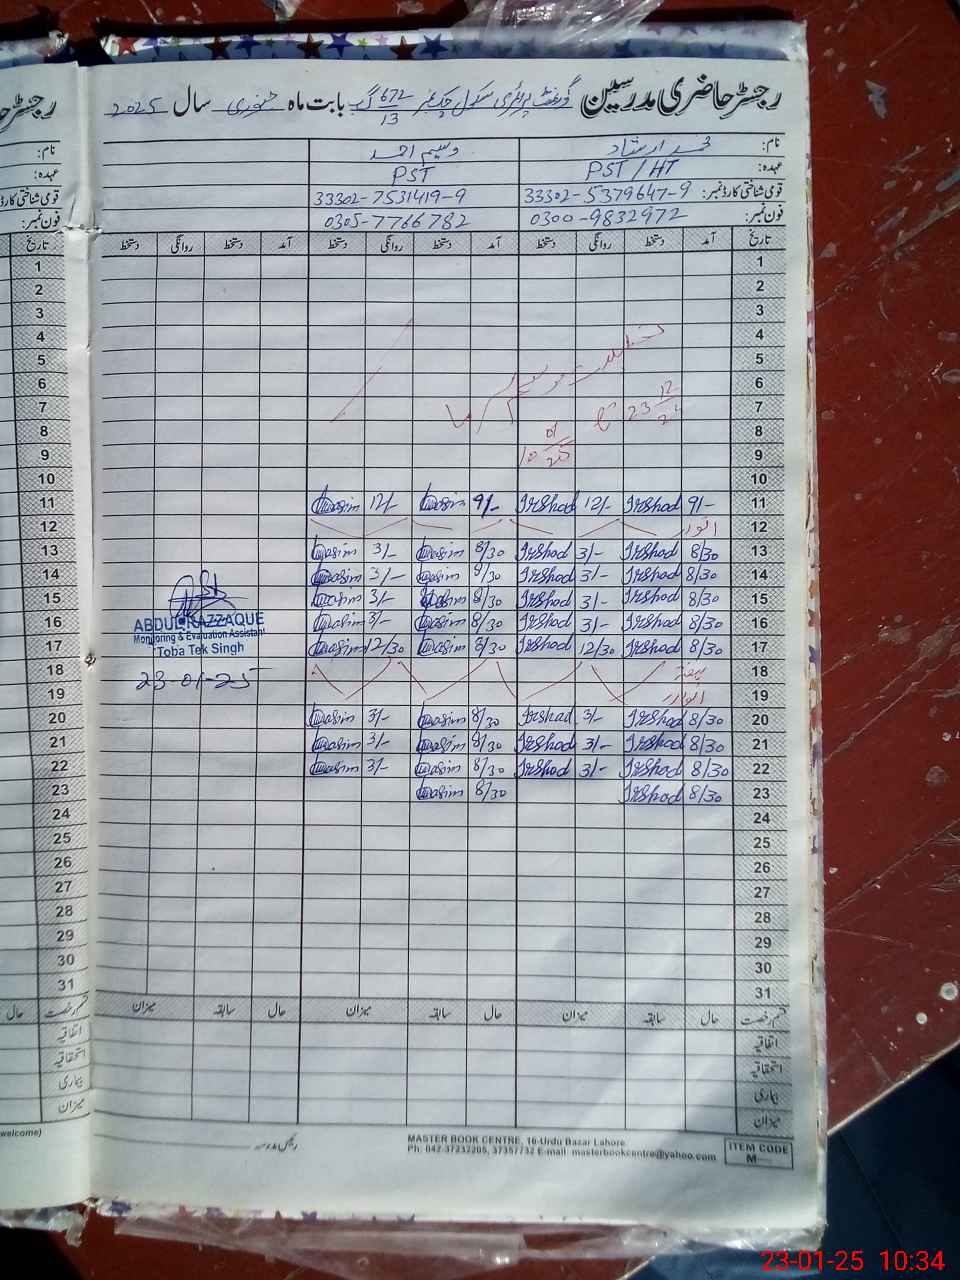 رجسٹر حاضری مدرسین گورنمنٹ پرائمری سکول چک نمبر 672/13 گ ب بابت ماہ جنوری سال 2025
نام: محمد ارشاد وسیم احمد
عہدہ: PST / HT PST
قومی شناختی کارڈ نمبر: 33302-5379647-9 33302-7531419-9
فون نمبر: 0300-9832972 0305-7766782
تاریخ آمد دستخط روانگی دستخط آمد دستخط روانگی دستخط آمد دستخط روانگی دستخط
1
2
3
4
5
6
7
8
9
10
تعطیلات موسم سرما
23 12
10 01 25
11 9/- Irshad 12/- Irshad 9/- Wasim 12/- Wasim
12 اتوار
13 8/30 Irshad 3/- Irshad 8/30 Wasim 3/- Wasim
14 8/30 Irshad 3/- Irshad 8/30 Wasim 3/- Wasim
15 8/30 Irshad 3/- Irshad 8/30 Wasim 3/- Wasim
16 8/30 Irshad 3/- Irshad 8/30 Wasim 3/- Wasim
17 8/30 Irshad 12/30 Irshad 8/30 Wasim 12/30 Wasim
18 ہفتہ
19 اتوار
20 8/30 Irshad 3/- Irshad 8/30 Wasim 3/- Wasim
21 8/30 Irshad 3/- Irshad 8/30 Wasim 3/- Wasim
22 8/30 Irshad 3/- Irshad 8/30 Wasim 3/- Wasim
23 8/30 Irshad 8/30 Wasim
24
25
26
27
28
29
30
31
ABDUL RAZZAQUE
Monitoring & Evaluation Assistant
Toba Tek Singh
23-01-25
قسم رخصت حال سابقہ میزان حال سابقہ میزان حال سابقہ میزان
اتفاقیہ
استحقاقیہ
بیماری
میزان
رئیس مدرسہ
MASTER BOOK CENTRE, 16-Urdu Bazar Lahore.
Ph: 042-37232205, 37357732 E-mail masterbookcentre@yahoo.com
ITEM CODE
M----
welcome)
23-01-25 10:34